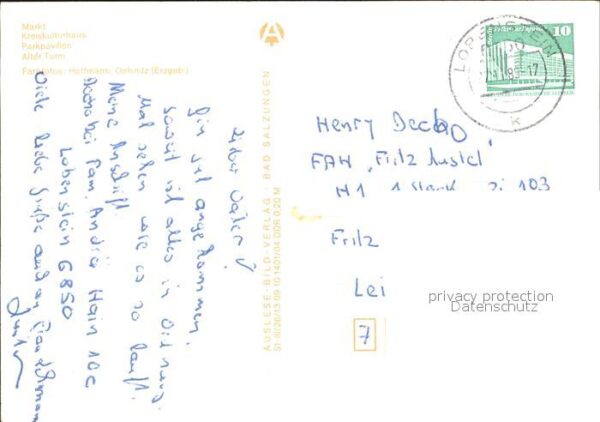 Markt
Kreiskulturhaus
Parkpavillon
Alter Turm
Farbfotos: Hoffmann, Oelsnitz (Erzgeb.)
AUSLESE-BILD-VERLAG · BAD SALZUNGEN
St III/26/13 09 10 1401/04 DDR 0,20 M
Lieber Vater!
Bin gut angekommen,
soweit ist alles in Ordnung.
Mal sehen wie es so läuft.
Meine Anschrift:
bei Fam. André Hain 10c
Lobenstein 6850
Viele liebe Grüße auch an Frau
LOBENSTEIN
10
k
Henry
FAH „Fritz
H1 1 Zi 103
Fritz
Lei
7
privacy protection
Datenschutz